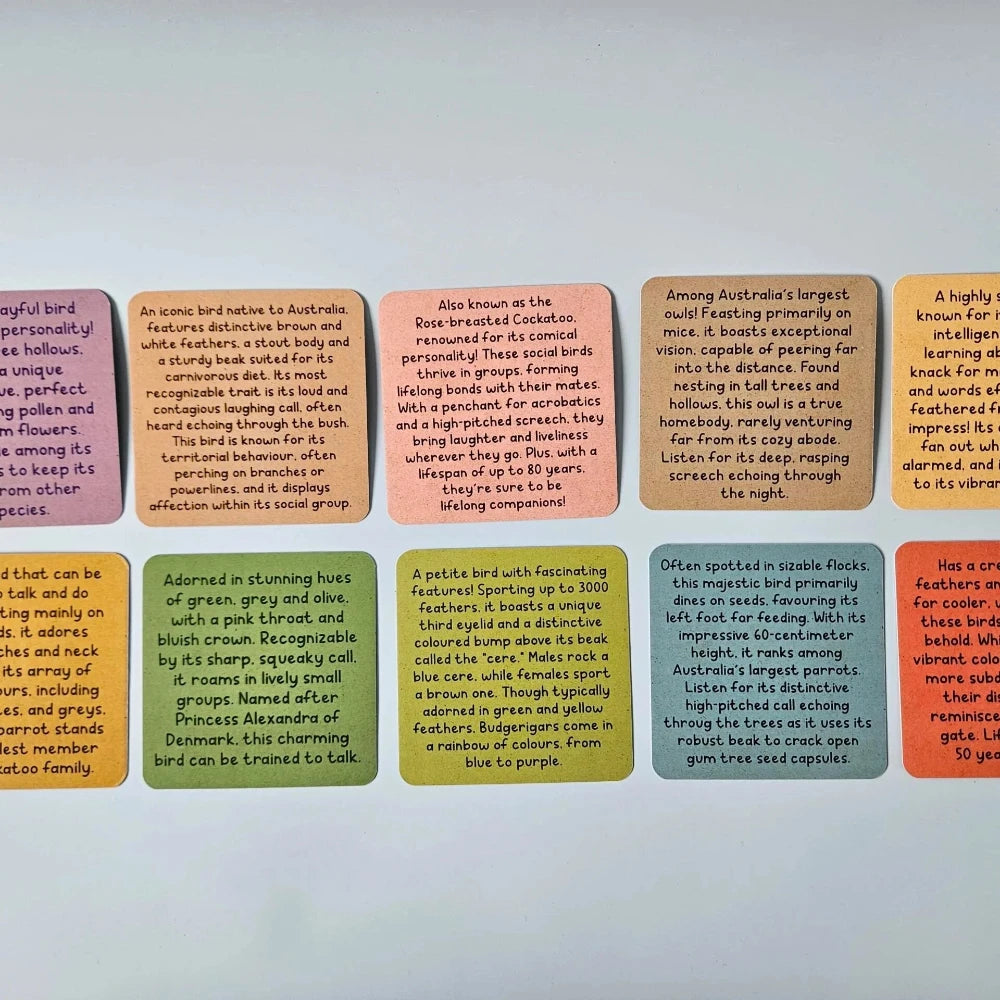 ayful bird
personality!
ee hollows.
a unique
ue, perfect
ng pollen and
m flowers.
e among its
s to keep its
rom other
pecies.
An iconic bird native to Australia,
features distinctive brown and
white feathers, a stout body and
a sturdy beak suited for its
carnivorous diet. Its most
recognizable trait is its loud and
contagious laughing call, often
heard echoing through the bush.
This bird is known for its
territorial behaviour, often
perching on branches or
powerlines, and it displays
affection within its social group.
Also known as the
Rose-breasted Cockatoo,
renowned for its comical
personality! These social birds
thrive in groups, forming
lifelong bonds with their mates.
With a penchant for acrobatics
and a high-pitched screech, they
bring laughter and liveliness
wherever they go. Plus, with a
lifespan of up to 80 years,
they're sure to be
lifelong companions!
Among Australia's largest
owls! Feasting primarily on
mice, it boasts exceptional
vision, capable of peering far
into the distance. Found
nesting in tall trees and
hollows, this owl is a true
homebody, rarely venturing
far from its cozy abode.
Listen for its deep, rasping
screech echoing through
the night.
A highly s
known for i
intelligen
learning ab
knack for m
and words ef
feathered fr
impress! Its c
fan out wh
alarmed, and i
to its vibran
d that can be
o talk and do
ting mainly on
ds, it adores
ches and neck
its array of
ours, including
es, and greys.
parrot stands
lest member
katoo family.
Adorned in stunning hues
of green, grey and olive,
with a pink throat and
bluish crown. Recognizable
by its sharp, squeaky call,
it roams in lively small
groups. Named after
Princess Alexandra of
Denmark, this charming
bird can be trained to talk.
A petite bird with fascinating
features! Sporting up to 3000
feathers, it boasts a unique
third eyelid and a distinctive
coloured bump above its beak
called the "cere." Males rock a
blue cere, while females sport
a brown one. Though typically
adorned in green and yellow
feathers, Budgerigars come in
a rainbow of colours, from
blue to purple.
Often spotted in sizable flocks,
this majestic bird primarily
dines on seeds, favouring its
left foot for feeding. With its
impressive 60-centimeter
height, it ranks among
Australia's largest parrots.
Listen for its distinctive
high-pitched call echoing
throug the trees as it uses its
robust beak to crack open
gum tree seed capsules.
Has a cre
feathers an
for cooler, u
these birds
behold. Whi
vibrant colo
more subd
their dis
reminisce
gate. Lif
50 yea